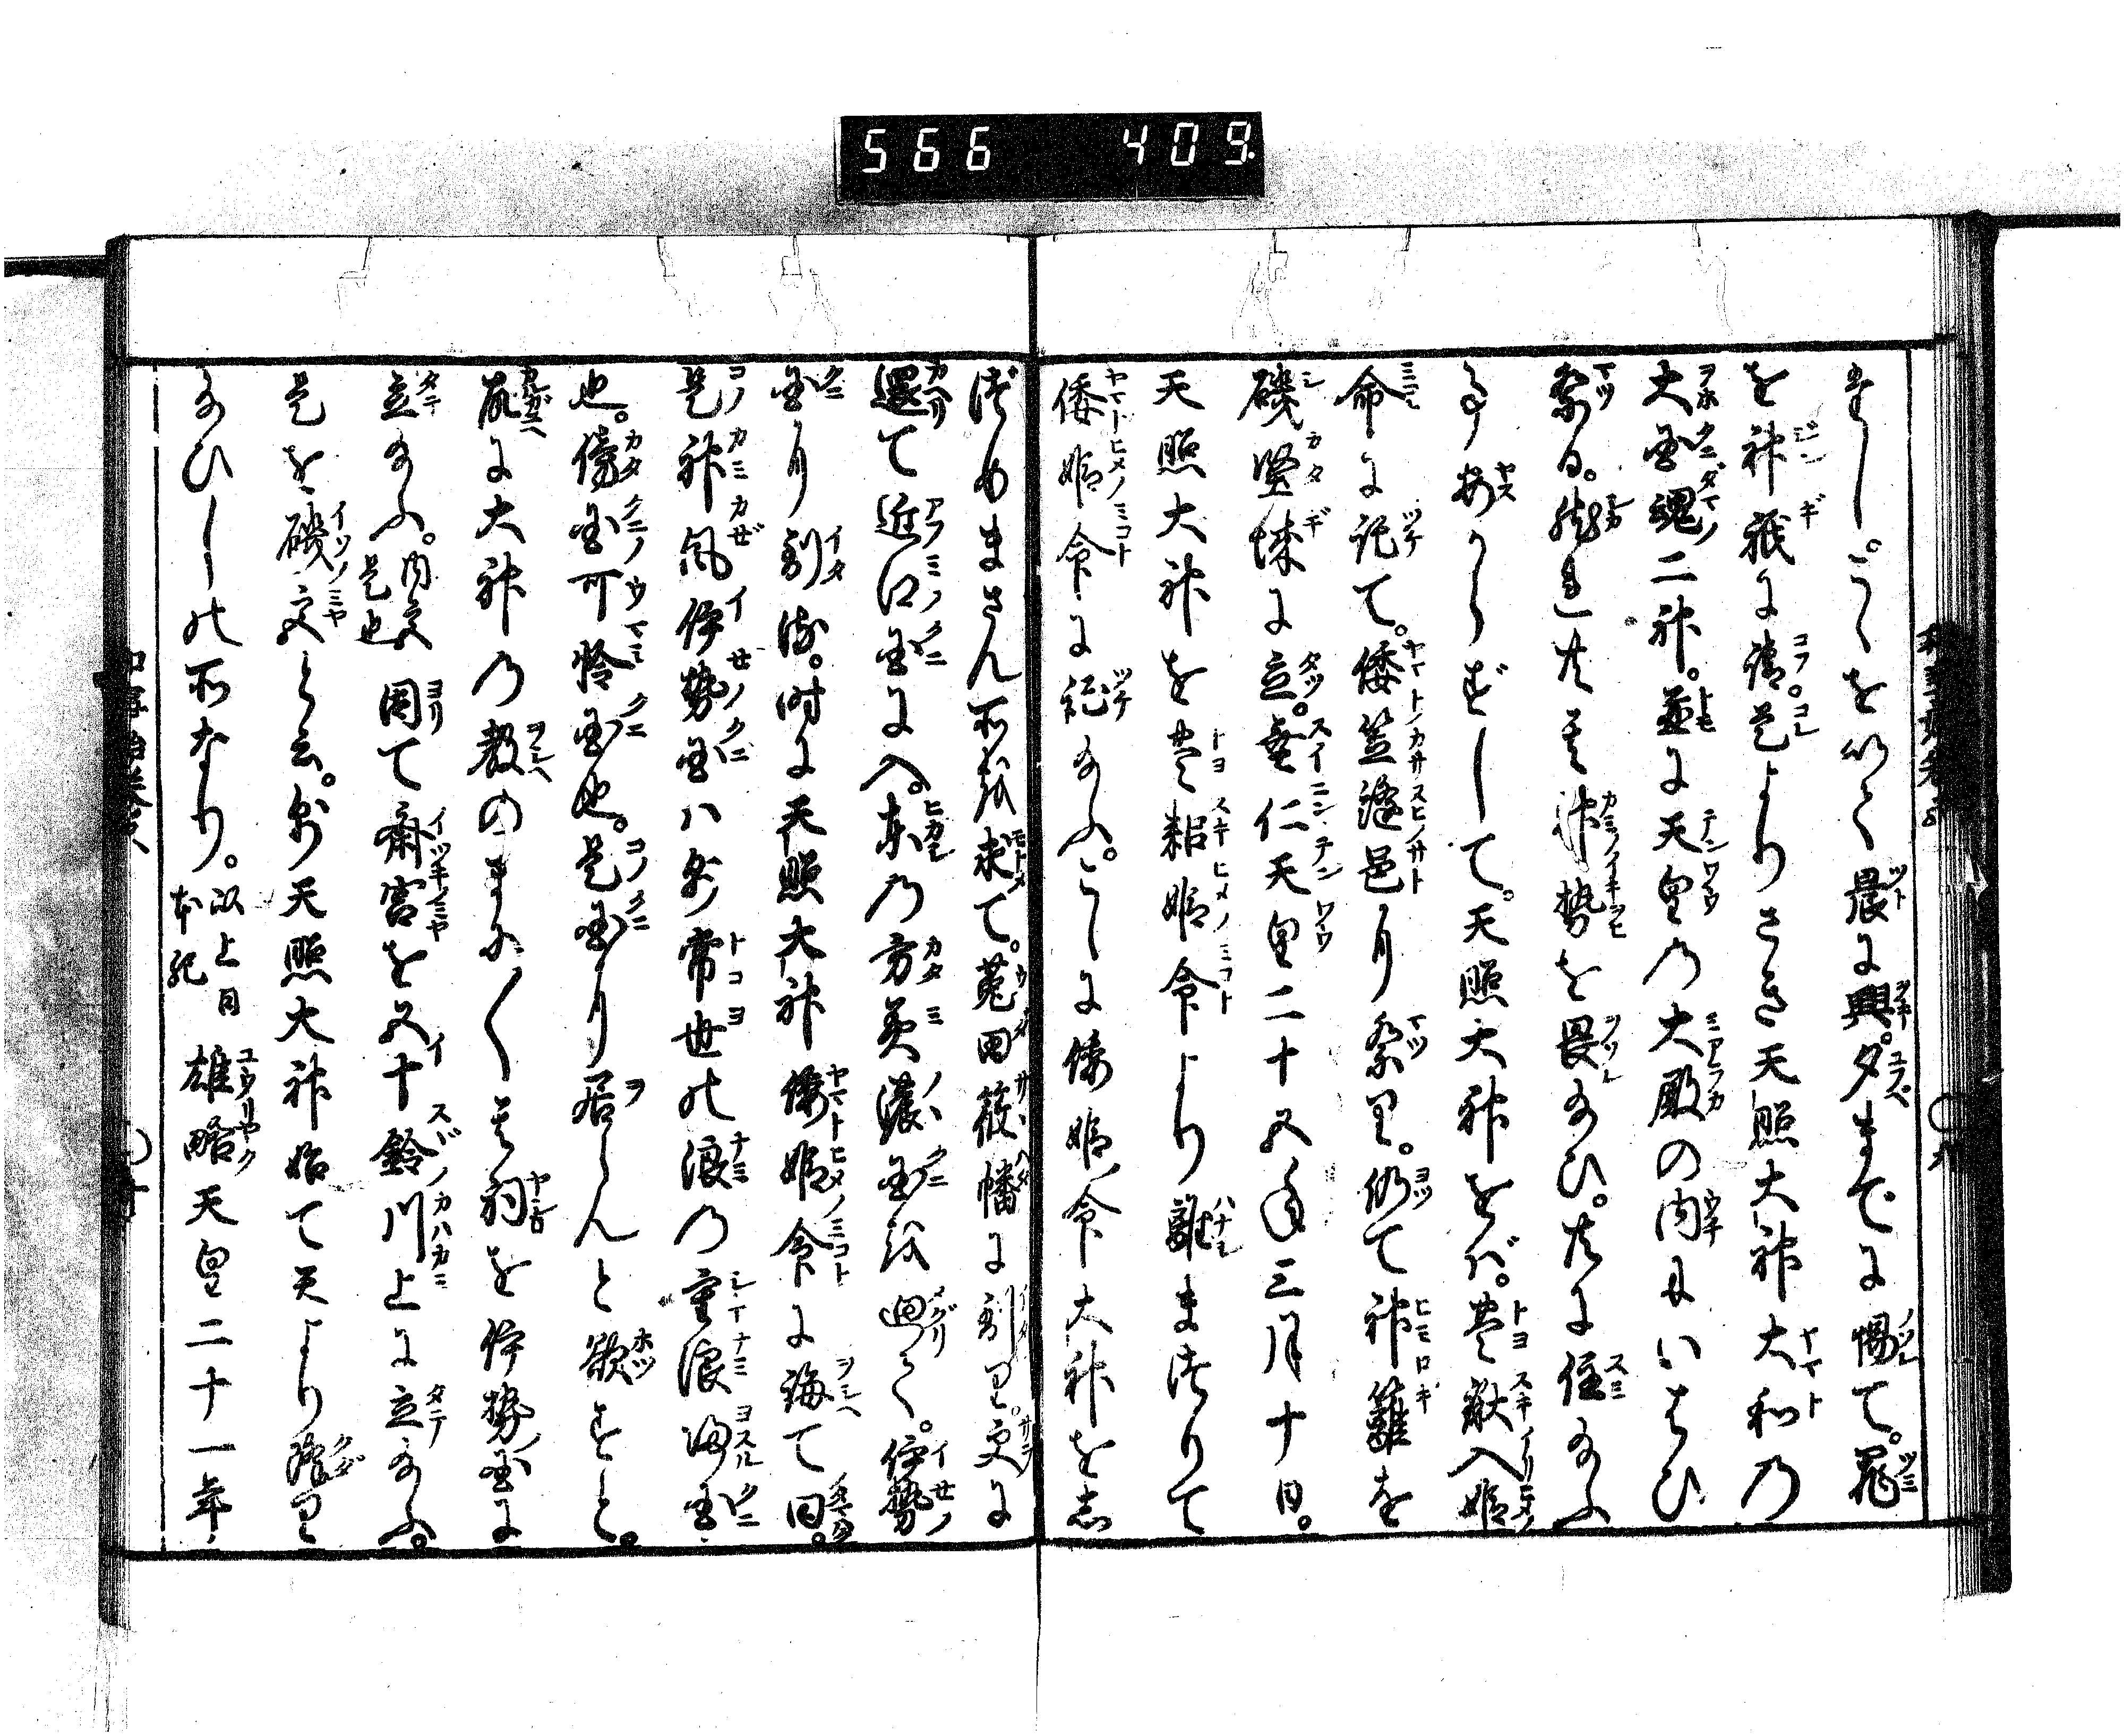 566 409
をし。こゝを以て晨に興。夕までに惕て。罪
を神祇に請。是よりさき天照大神大和乃
大国魂二神。並に天皇乃大殿の内にいはひ
祭る。然れ共其神勢を畏給ひ。共に住給ふ
事安からずして。天照大神をば。豊鍬入姫
命に託て。倭笠縫邑に祭る。仍て神籬を
磯堅城に立。垂仁天皇二十五年三月十日。
天照大神を豊耜姫命より離まつりて
倭姫命に託給ふ。こゝに倭姫命大神を志
づめまさん所を求て。菟田筱幡に到る。更に
還て近江国に入。東乃方美濃国を廻て。伊勢
国に到給。時に天照大神倭姫命に誨て曰。
是神風伊勢国ハ則常世の浪乃重浪帰国
也。傍国可怜国也。是国に居らんと欲すと。
故に大神乃教のまに〱其祠を伊勢国に
立給ふ。内宮是也 因て斎宮を五十鈴川上に立給ふ。
是を磯宮と云。則天照大神始て天より降り
給ひし所なり。以上日本紀 雄略天皇二十一年